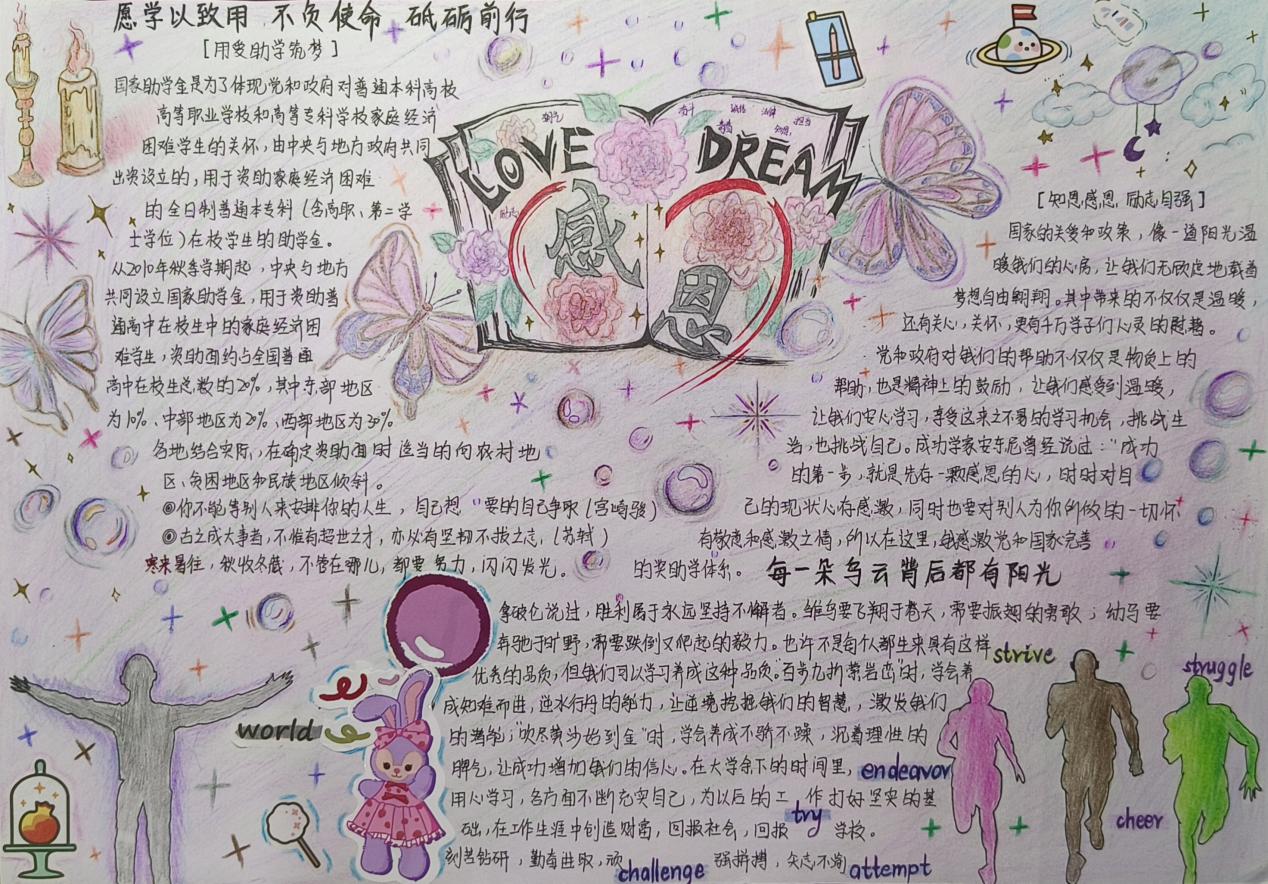 愿学以致用 不负使命 砥砺前行
[用爱助学筑梦]
国家助学金是为了体现党和政府对普通本科高校
高等职业学校和高等专科学校家庭经济
困难学生的关怀,由中央与地方政府共同
出资设立的,用于资助家庭经济困难
的全日制普通本专科(含高职、第二学
士学位)在校学生的助学金。
从2010年秋季学期起,中央与地方
共同设立国家助学金,用于资助普
通高中在校生中的家庭经济困
难学生,资助面约占全国普通
高中在校生总数的20%,其中东部地区
为10%、中部地区为20%、西部地区为30%。
各地结合实际,在确定资助面时适当的向农村地
区、贫困地区和民族地区倾斜。
◎你不能等别人来安排你的人生,自己想要的自己争取(宫崎骏)
◎古之成大事者,不惟有超世之才,亦必有坚韧不拔之志,(苏轼)
寒来暑往,秋收冬藏,不管在哪儿,都要努力,闪闪发光。
LOVE DREAM
感
恩
励志
[知恩感恩 励志自强]
国家的关爱和政策,像一道阳光温
暖我们的心房,让我们无顾虑地载着
梦想自由翱翔。其中带来的不仅仅是温暖,
还有关心,关怀,更有千万学子们心灵的慰藉。
党和政府对我们的帮助不仅仅是物质上的
帮助,也是精神上的鼓励,让我们感受到温暖,
让我们安心学习,享受这来之不易的学习机会,挑战生
活,也挑战自己。成功学家安东尼曾经说过:“成功
的第一步,就是先存一颗感恩的心,时时对自
己的现状心存感激,同时也要对别人为你所做的一切怀
有敬意和感激之情,所以在这里,我感激党和国家完善
的奖助学体系。 每一朵乌云背后都有阳光
拿破仑说过,胜利属于永远坚持不懈者。雏鸟要飞翔于苍天,需要振翅的勇敢;幼马要
奔驰于旷野,需要跌倒又爬起的毅力。也许不是每个人都生来具有这样
优秀的品质,但我们可以学习养成这种品质。“百步九折萦岩峦”时,学会养
成知难而进,逆水行舟的能力,让逆境挖掘我们的智慧,激发我们
的潜能;“吹尽黄沙始到金”时,学会养成不骄不躁,沉着理性的
脾气,让成功增加我们的信心。在大学余下的时间里,
用心学习,各方面不断充实自己,为以后的工作打好坚实的基
础,在工作生涯中创造财富,回报社会,回报学校。
刻苦钻研,勤奋进取,顽强拼搏,矢志不渝
strive
struggle
world
endeavor
try
cheer
challenge
attempt